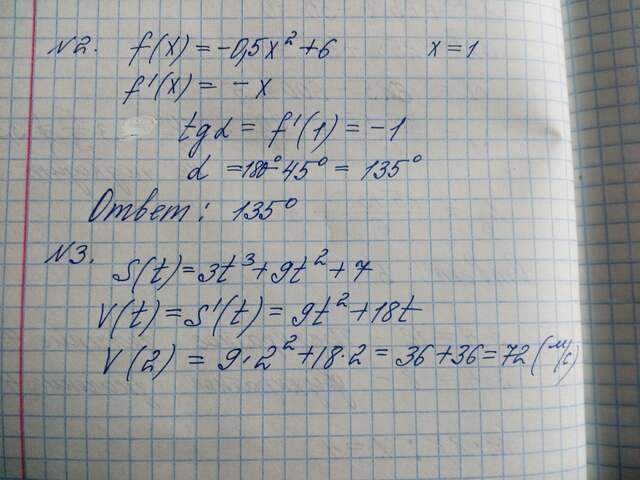 N2. f(x) = -0,5x² + 6 x = 1
f'(x) = - x
tgα = f'(1) = -1
α = 180° - 45° = 135°
Ответ: 135°
N3.
S(t) = 3t³ + 9t² + 7
V(t) = S'(t) = 9t² + 18t
V(2) = 9·2² + 18·2 = 36 + 36 = 72 (м/с)